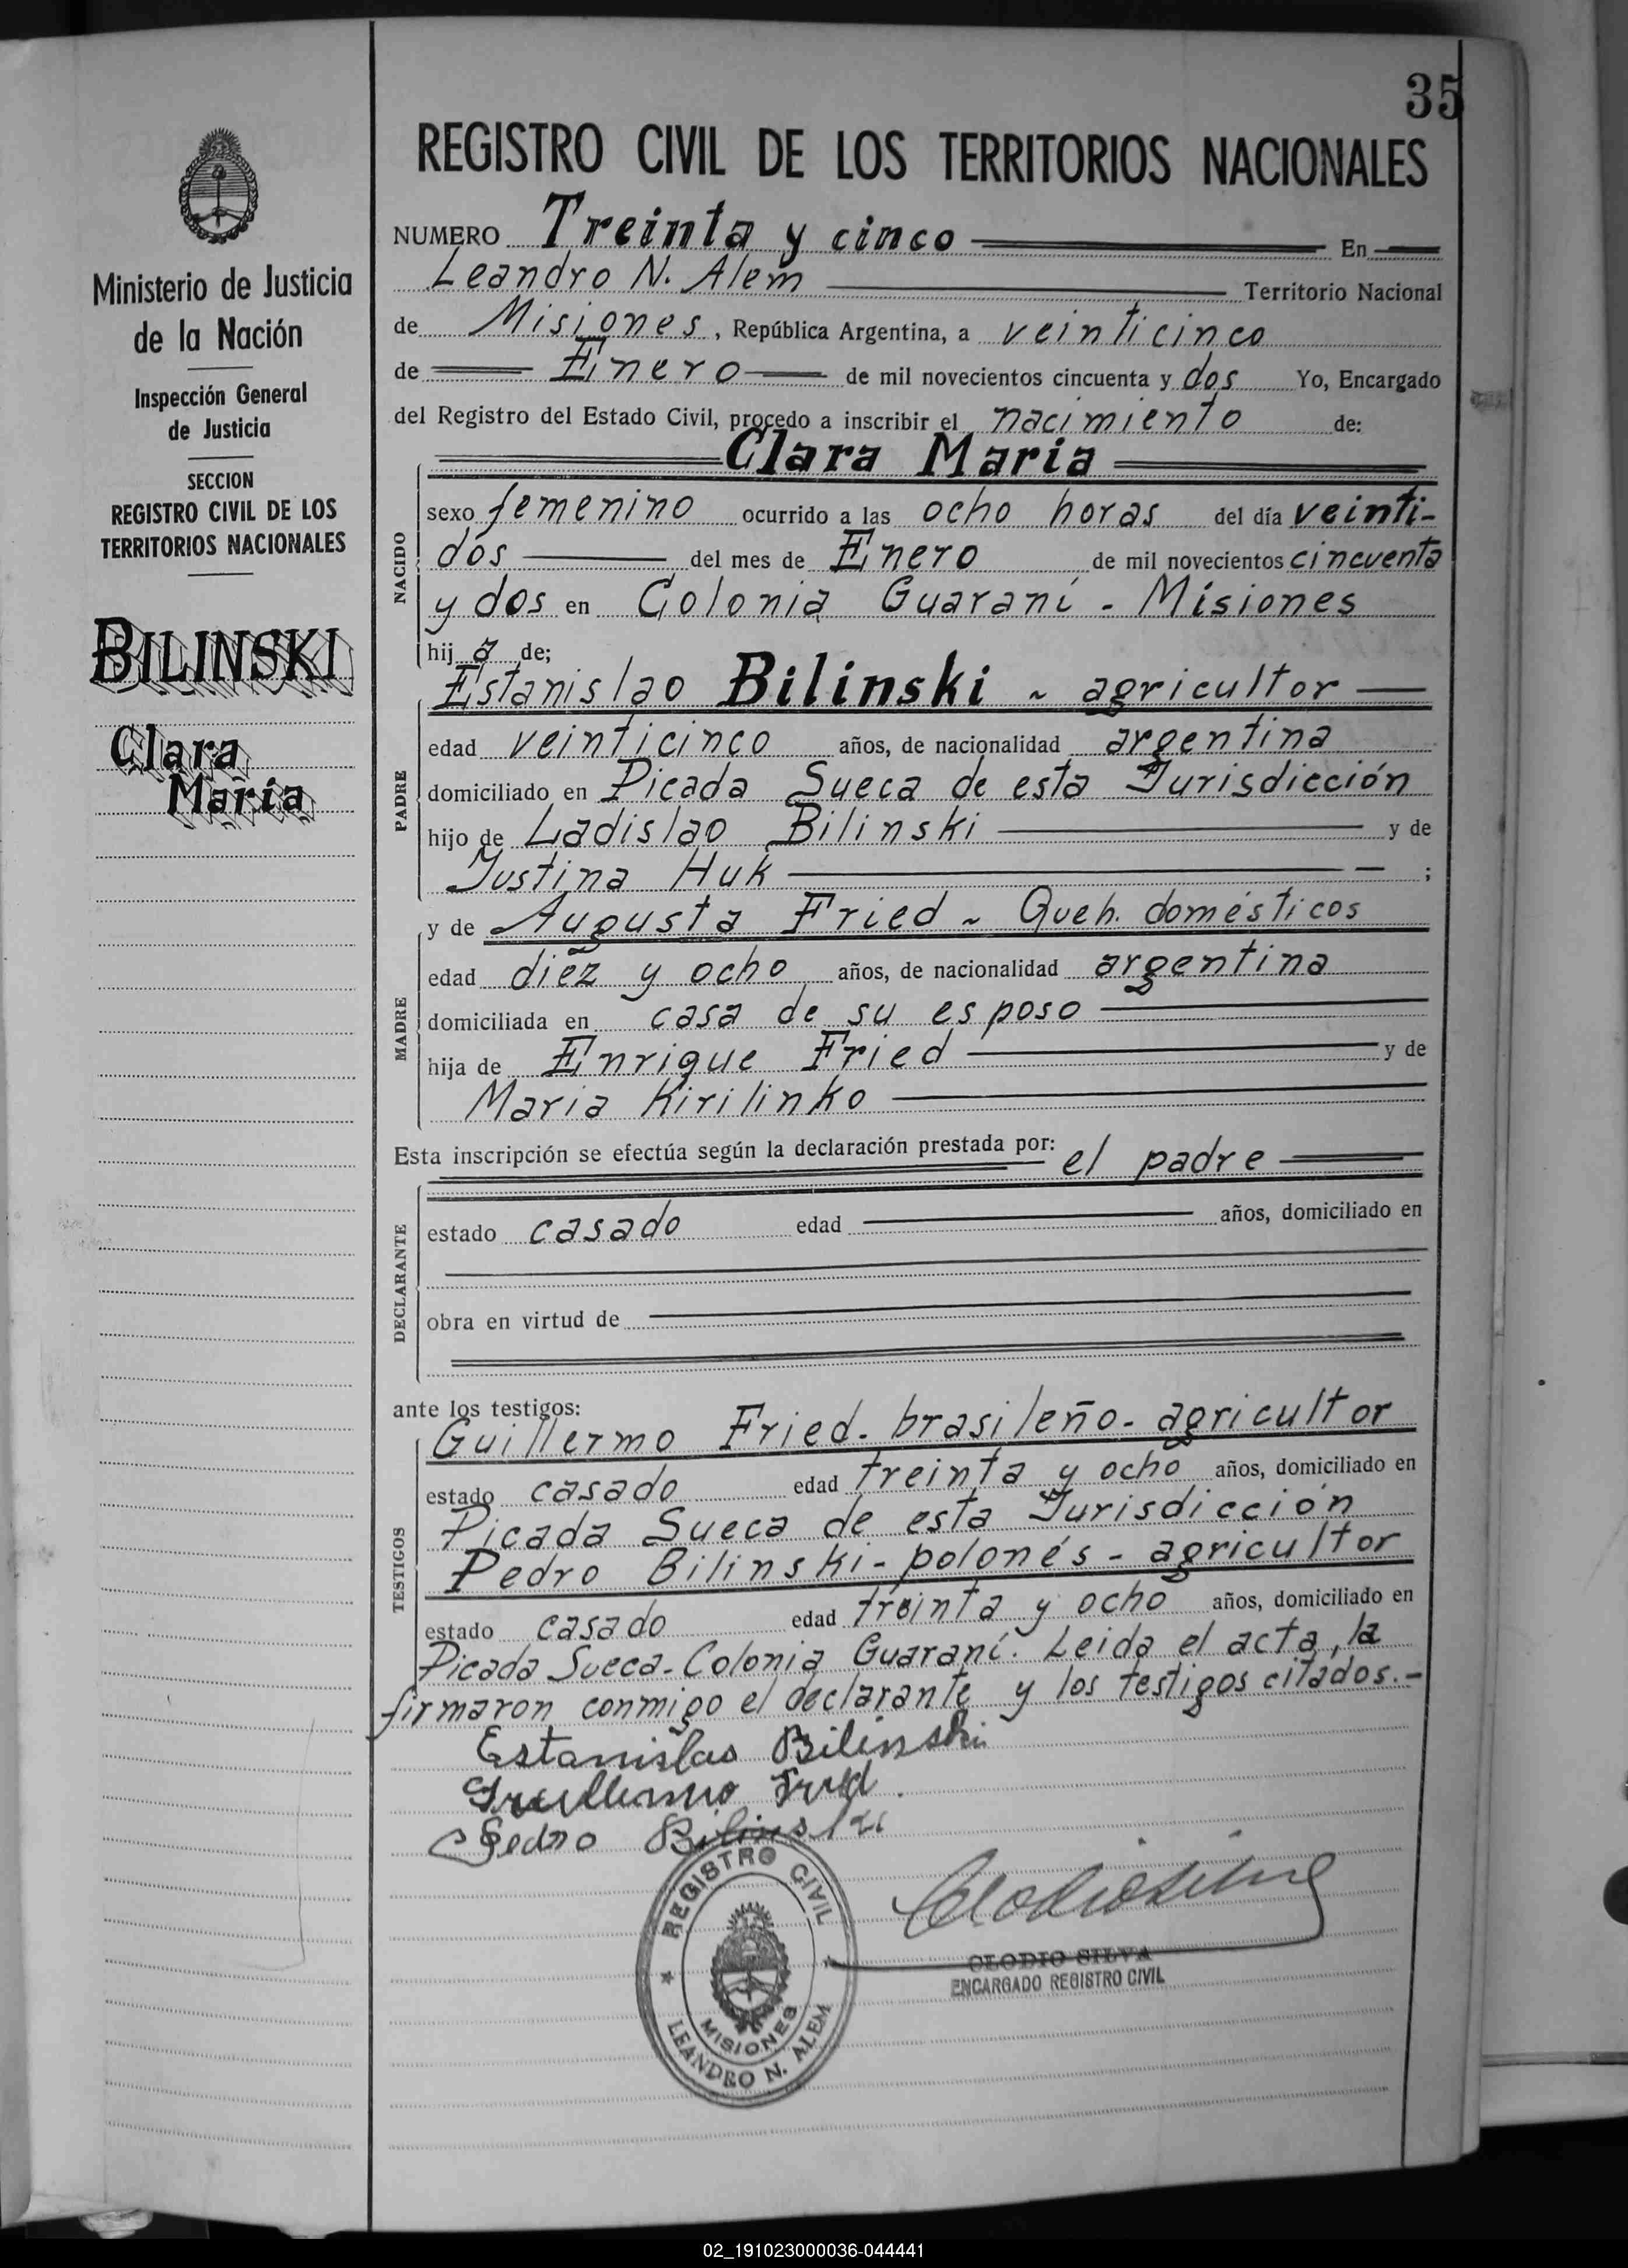 35
REGISTRO CIVIL DE LOS TERRITORIOS NACIONALES
Ministerio de Justicia
de la Nación
Inspección General
de Justicia
SECCION
REGISTRO CIVIL DE LOS
TERRITORIOS NACIONALES
BILINSKI
Clara
Maria
NUMERO Treinta y cinco En
Leandro N. Alem Territorio Nacional
de Misiones, República Argentina, a veinticinco
de Enero de mil novecientos cincuenta y dos Yo, Encargado
del Registro del Estado Civil, procedo a inscribir el nacimiento de:
Clara Maria
NACIDO
sexo femenino ocurrido a las ocho horas del día veinti-
dos del mes de Enero de mil novecientos cincuenta
y dos en Colonia Guaraní - Misiones
hij a de;
PADRE
Estanislao Bilinski ~ agricultor
edad veinticinco años, de nacionalidad argentina
domiciliado en Picada Sueca de esta Jurisdicción
hijo de Ladislao Bilinski y de
Justina Huk ;
MADRE
y de Augusta Fried ~ Queh. domésticos
edad diez y ocho años, de nacionalidad argentina
domiciliada en casa de su esposo
hija de Enrique Fried y de
Maria Kirilinko
Esta inscripción se efectúa según la declaración prestada por: el padre
DECLARANTE
estado casado edad años, domiciliado en
obra en virtud de
ante los testigos:
TESTIGOS
Guillermo Fried - brasileño - agricultor
estado casado edad treinta y ocho años, domiciliado en
Picada Sueca de esta Jurisdicción
Pedro Bilinski - polonés - agricultor
estado casado edad treinta y ocho años, domiciliado en
Picada Sueca - Colonia Guaraní. Leida el acta, la
firmaron conmigo el declarante y los testigos citados.-
Estanislao Bilinski
Guillermo Fried
Pedro Bilinski
REGISTRO CIVIL
MISIONES
LEANDRO N. ALEM
CLODIO SILVA
ENCARGADO REGISTRO CIVIL
02_191023000036-044441